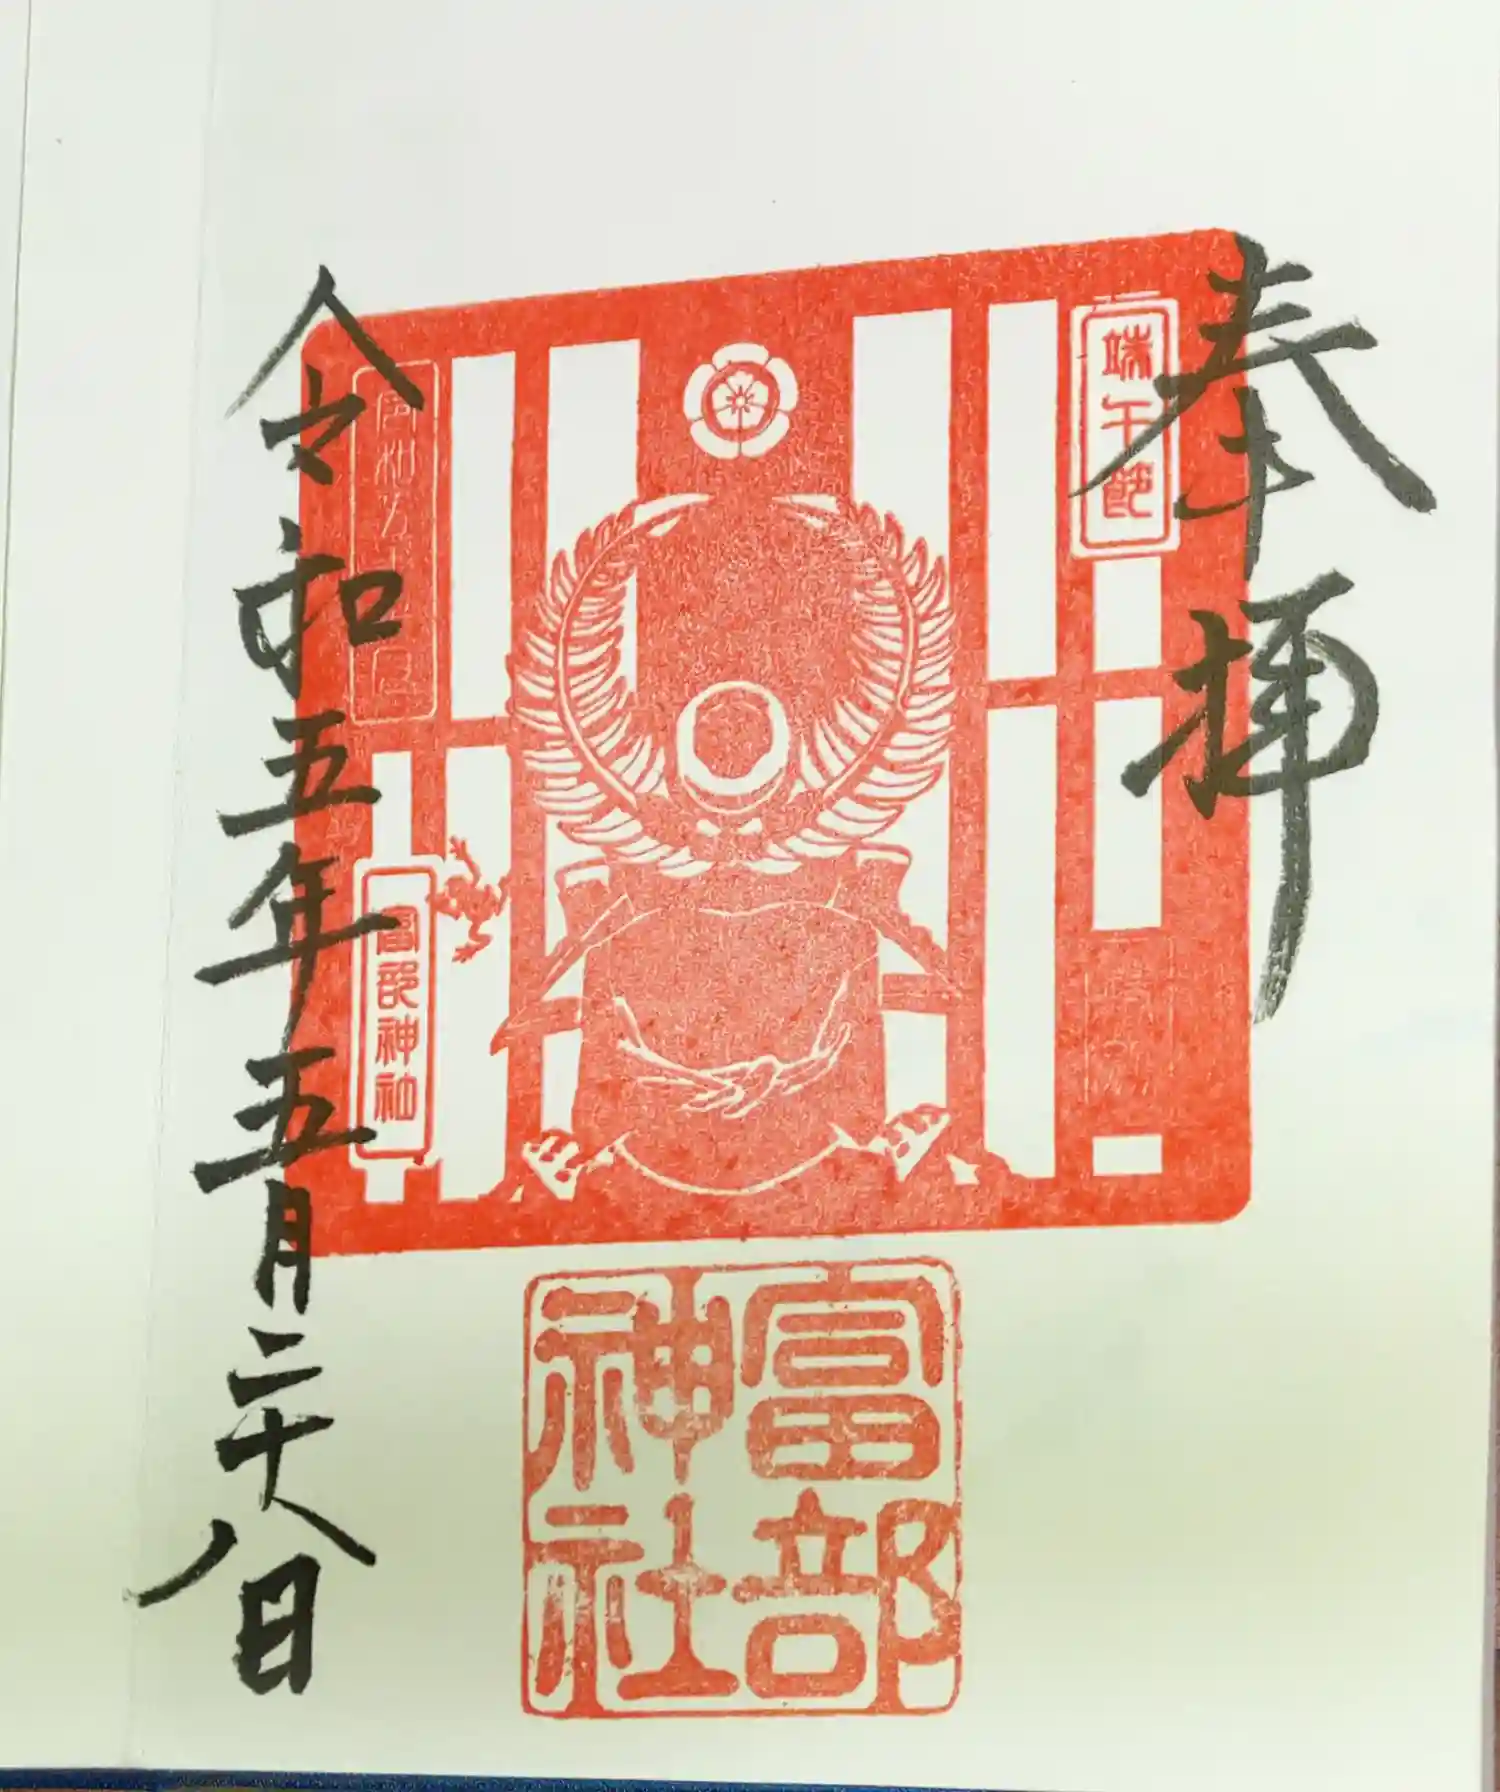 奉拝
端午節
富部神社
富部
神社
令和五年五月二十八日